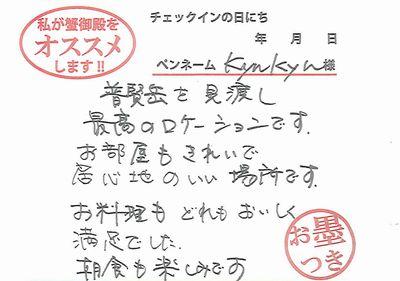 私が蟹御殿を
オススメ
します!!
チェックインの日にち
年 月 日
ペンネーム kyukyu 様
普賢岳を見渡し
最高のロケーションです.
お部屋もきれいで
居心地のいい場所です.
お料理もどれもおいしく
満足でした.
朝食も楽しみです
お墨
つき